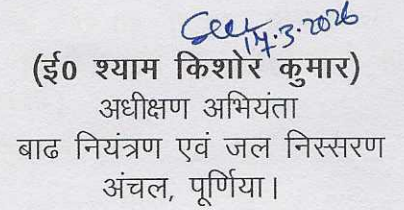 17.3.2026
(ई0 श्याम किशोर कुमार)
अधीक्षण अभियंता
बाढ नियंत्रण एवं जल निस्सरण
अंचल, पूर्णिया।